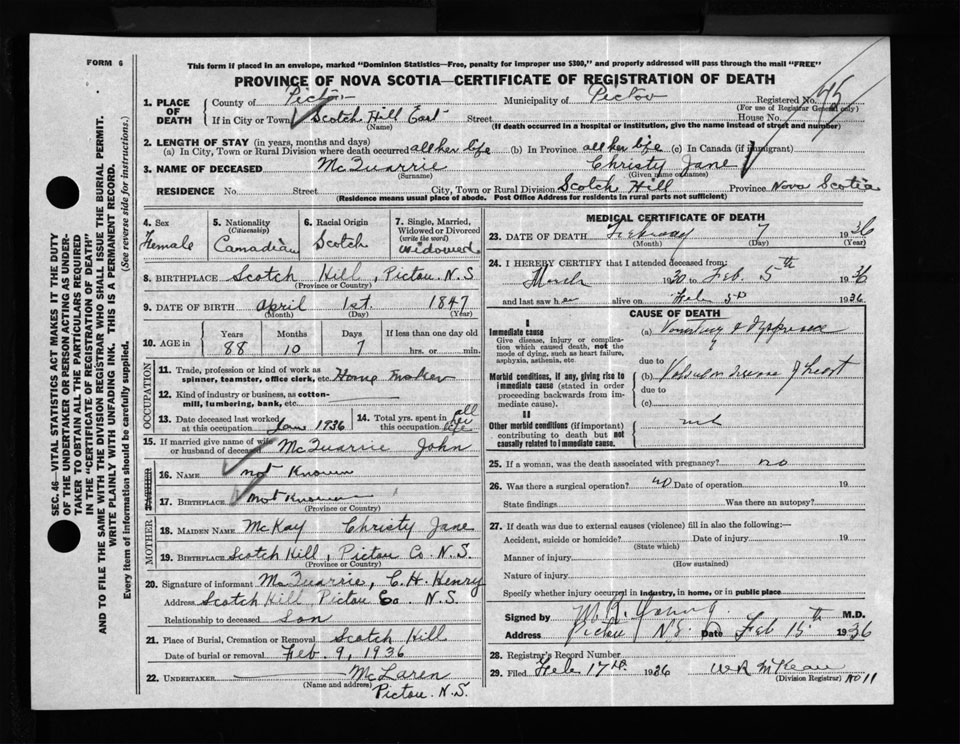 FORM 6
This form if placed in an envelope, marked "Dominion Statistics—Free, penalty for improper use $300," and properly addressed will pass through the mail "FREE"
PROVINCE OF NOVA SCOTIA—CERTIFICATE OF REGISTRATION OF DEATH
SEC. 46—VITAL STATISTICS ACT MAKES IT THE DUTY
OF THE UNDERTAKER OR PERSON ACTING AS UNDER-
TAKER TO OBTAIN ALL THE PARTICULARS REQUIRED
IN THE "CERTIFICATE OF REGISTRATION OF DEATH"
AND TO FILE THE SAME WITH THE DIVISION REGISTRAR WHO SHALL ISSUE THE BURIAL PERMIT.
WRITE PLAINLY WITH UNFADING INK. THIS IS A PERMANENT RECORD.
Every item of information should be carefully supplied. (See reverse side for instructions.)
1. PLACE OF DEATH County of Pictou Municipality of Pictou Registered No. 45
(For use of Registrar General only)
If in City or Town Scotch Hill East Street House No.
(Name) (If death occurred in a hospital or institution, give the name instead of street and number)
2. LENGTH OF STAY (in years, months and days)
(a) In City, Town or Rural Division where death occurred all her life (b) In Province all her life (c) In Canada (if immigrant)
3. NAME OF DECEASED McQuarrie Christy Jane
(Surname) (Given name or names)
RESIDENCE No. Street City, Town or Rural Division Scotch Hill Province Nova Scotia
(Residence means usual place of abode. Post Office Address for residents in rural parts not sufficient)
4. Sex Female
5. Nationality (Citizenship) Canadian
6. Racial Origin Scotch
7. Single, Married, Widowed or Divorced (write the word) Widowed
8. BIRTHPLACE Scotch Hill, Pictou N.S
(Province or Country)
9. DATE OF BIRTH April 1st. 1847
(Month) (Day) (Year)
10. AGE in Years 88 Months 10 Days 7 If less than one day old hrs. or min.
OCCUPATION
11. Trade, profession or kind of work as spinner, teamster, office clerk, etc. Home Maker
12. Kind of industry or business, as cotton-mill, lumbering, bank, etc.
13. Date deceased last worked at this occupation Jan 1936
14. Total yrs. spent in this occupation all her life
15. If married give name of wife or husband of deceased McQuarrie John
FATHER
16. NAME not Known
17. BIRTHPLACE Not Known
(Province or Country)
MOTHER
18. MAIDEN NAME McKay Christy Jane
19. BIRTHPLACE Scotch Hill, Pictou Co. N.S.
(Province or Country)
20. Signature of informant McQuarrie, C. H. Henry
Address Scotch Hill, Pictou Co. N.S.
Relationship to deceased Son
21. Place of Burial, Cremation or Removal Scotch Hill
Date of burial or removal Feb. 9, 1936
22. UNDERTAKER McLaren
(Name and address) Pictou. N.S.
MEDICAL CERTIFICATE OF DEATH
23. DATE OF DEATH February 7 1936
(Month) (Day) (Year)
24. I HEREBY CERTIFY that I attended deceased from:
March 1930 to Feb 5th 1936
and last saw her alive on Feb 1936.
CAUSE OF DEATH
I
Immediate cause
Give disease, injury or complication which caused death, not the mode of dying, such as heart failure, asphyxia, asthenia, etc.
(a) Vomiting &
due to
Morbid conditions, if any, giving rise to immediate cause (stated in order proceeding backwards from immediate cause).
(b) Valvular disease of heart
due to
(c)
II
Other morbid conditions (if important) contributing to death but not causally related to immediate cause.
25. If a woman, was the death associated with pregnancy? no
26. Was there a surgical operation? no Date of operation 19
State findings Was there an autopsy?
27. If death was due to external causes (violence) fill in also the following:—
Accident, suicide or homicide? Date of injury 19
(State which)
Manner of injury
(How sustained)
Nature of injury
Specify whether injury occurred in industry, in home, or in public place
Signed by Young M.D.
Address Pictou N.S. Date Feb 15th 1936
28. Registrar's Record Number
29. Filed Feb 17th 1936 W R McKean
(Division Registrar) No 11